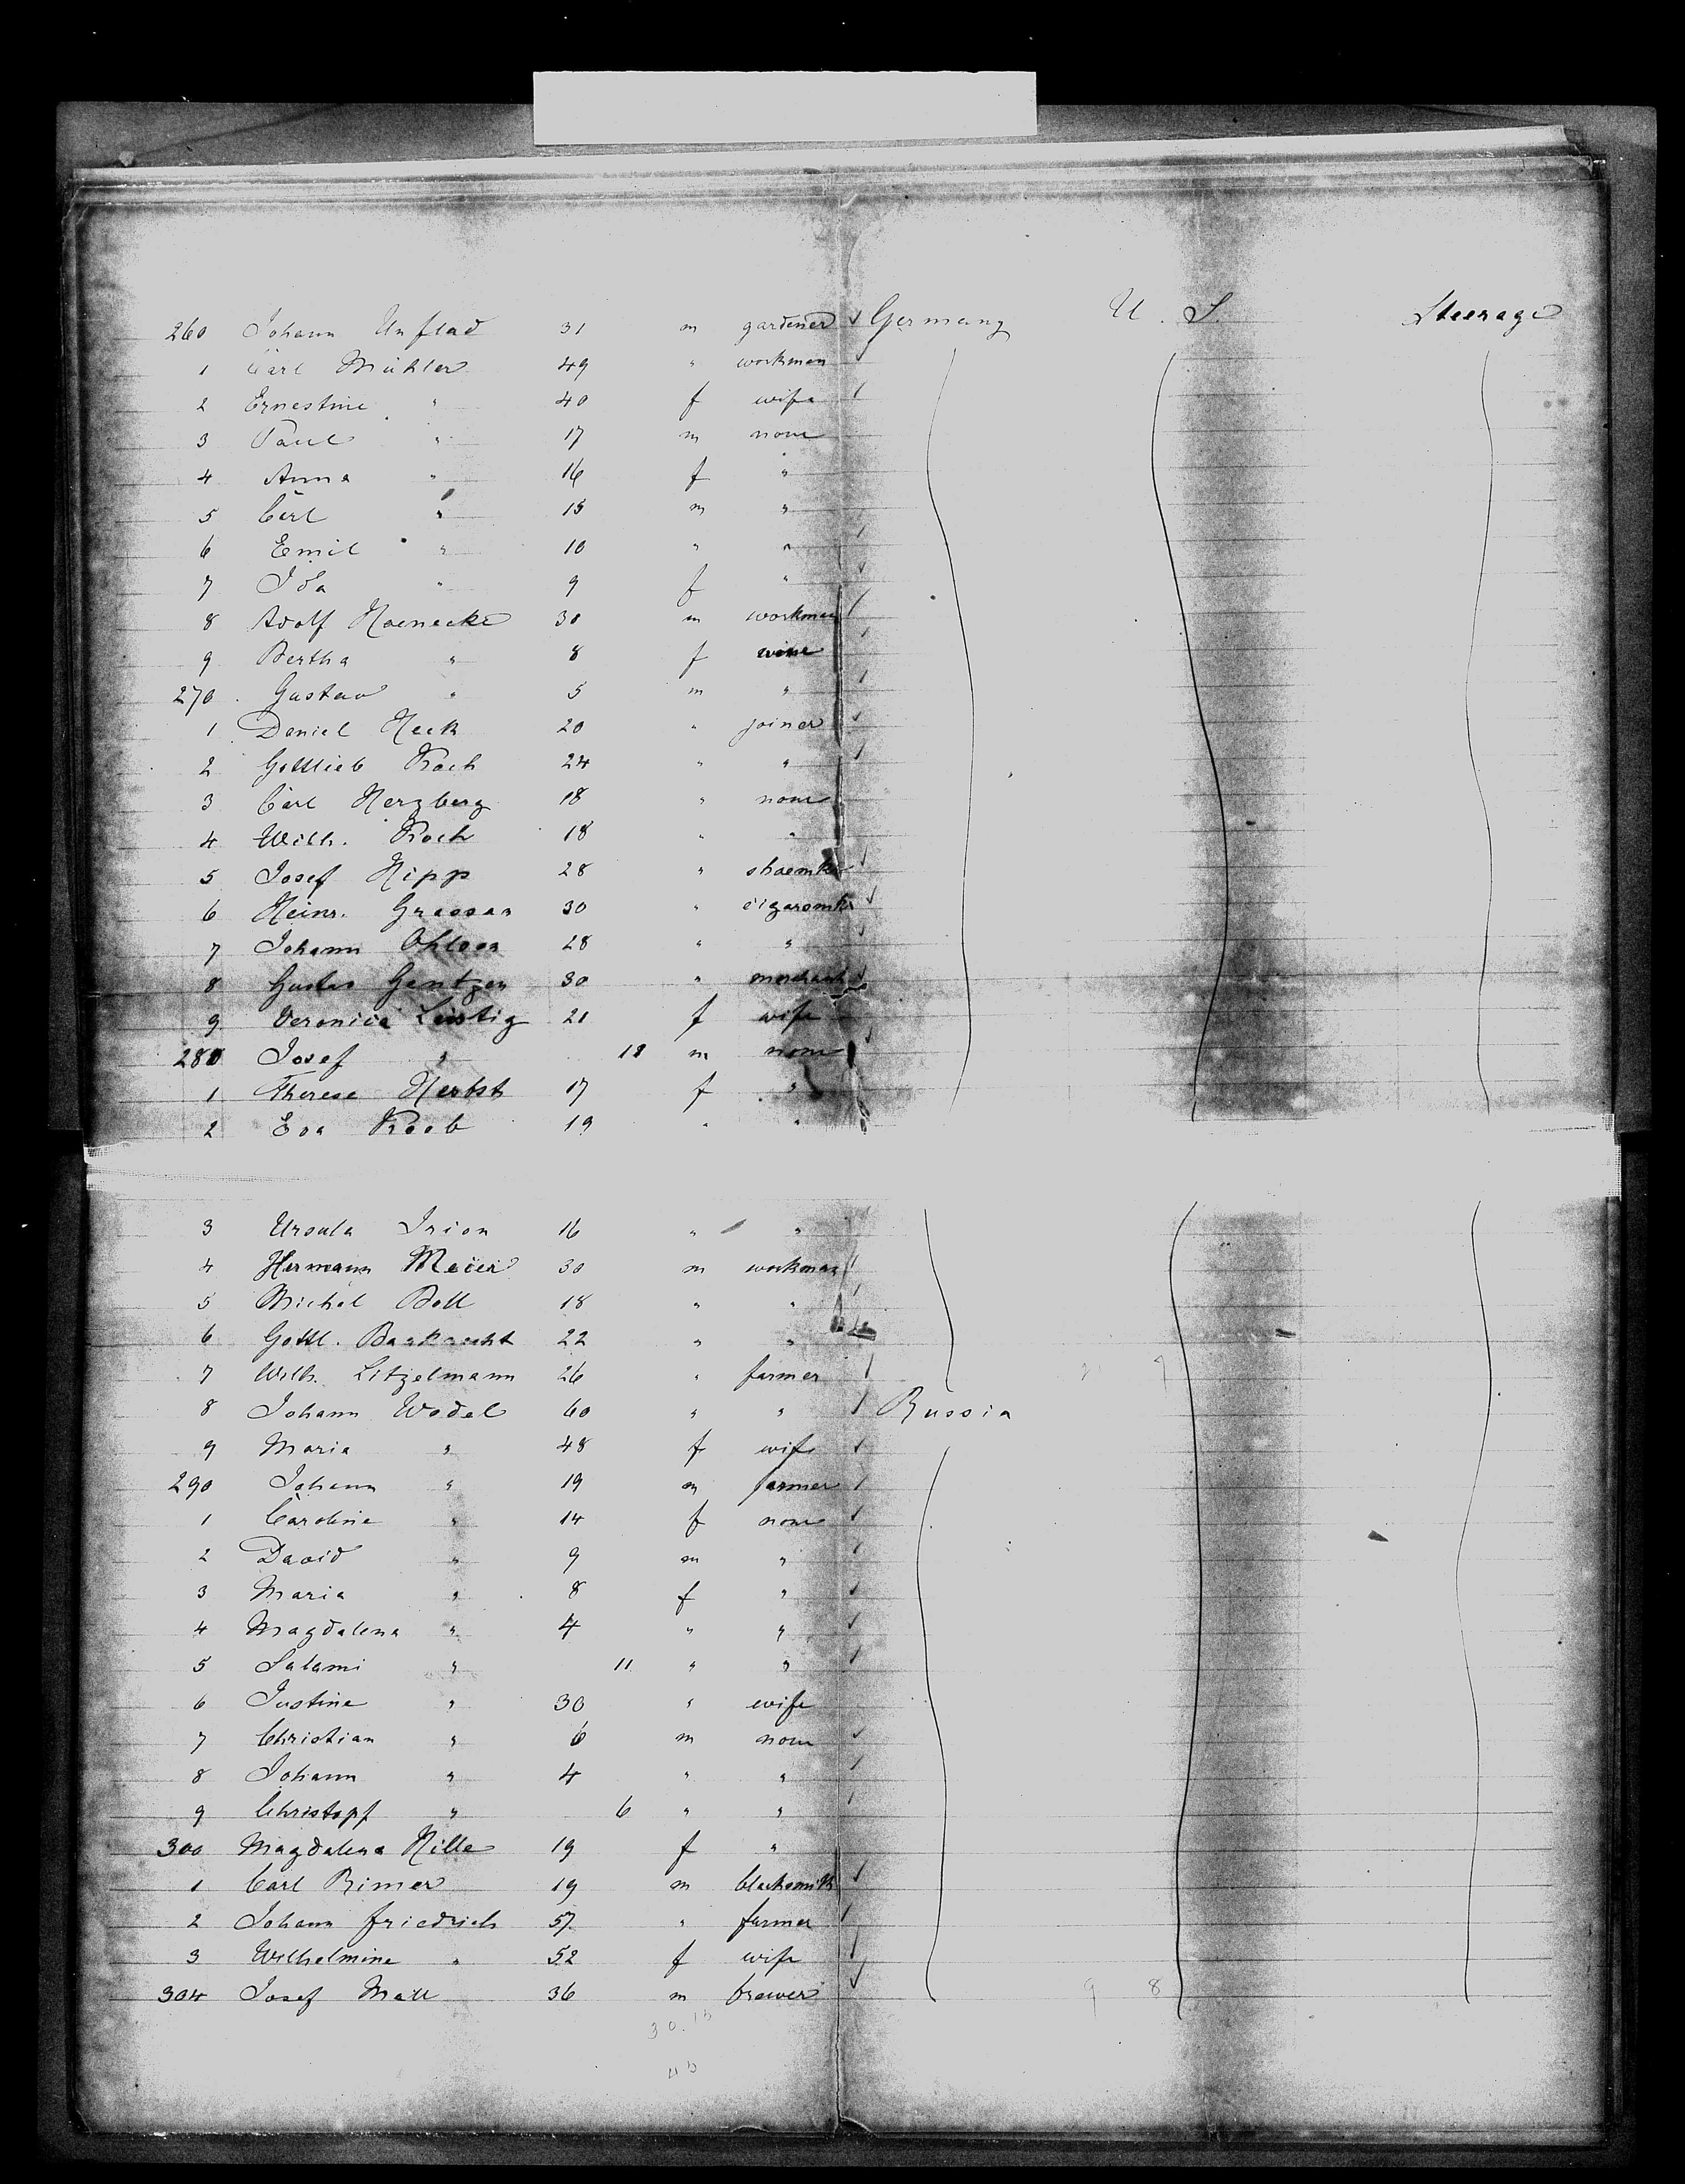 260 Johann Unflad 31 m gardener ✓ Germany U. S. Steerage
1 Carl Mühler 49 " workman
2 Ernestine " 40 f wife
3 Paul " 17 m none
4 Anna " 16 f "
5 Carl " 15 m "
6 Emil " 10 " "
7 Ida " 9 f "
8 Adolf Haenecke 30 m workman
9 Bertha " 8 f none
270 Gustav " 5 m "
1 Daniel Heck 20 " joiner
2 Gottlieb Koch 24 " "
3 Carl Herzberg 18 " none
4 Wilh. Koch 18 " "
5 Josef Hipp 28 " shoemkr
6 Heinr. 30 " cigaromkr
7 Johann 28 " "
8 Gustav Gentzen 30 "
9 Veronica Lustig 21 f wife
280 Josef " 18 m none
1 Therese Herbst 17 f "
2 Eva Kolb 19 " "
3 Ursula Irion 16 " "
4 Hermann Meier 30 m workman
5 Michel Boll 18 " "
6 Gottl. 22 " "
7 Wilh. Litzelmann 26 " farmer
8 Johann Wodel 60 " " Russia
9 Maria " 48 f wife
290 Johann " 19 m farmer
1 Caroline " 14 f none
2 David " 9 m "
3 Maria " 8 f "
4 Magdalena " 4 " "
5 Salami " 11 " "
6 Justine " 30 " wife
7 Christian " 6 m none
8 Johann " 4 " "
9 Christopf " 6 " "
300 Magdalena Hille 19 f "
1 Carl Rimer 19 m blacksmith
2 Johann Friedrich 57 " farmer
3 Wilhelmine " 52 f wife
304 Josef Mall 36 m brewer 9 8